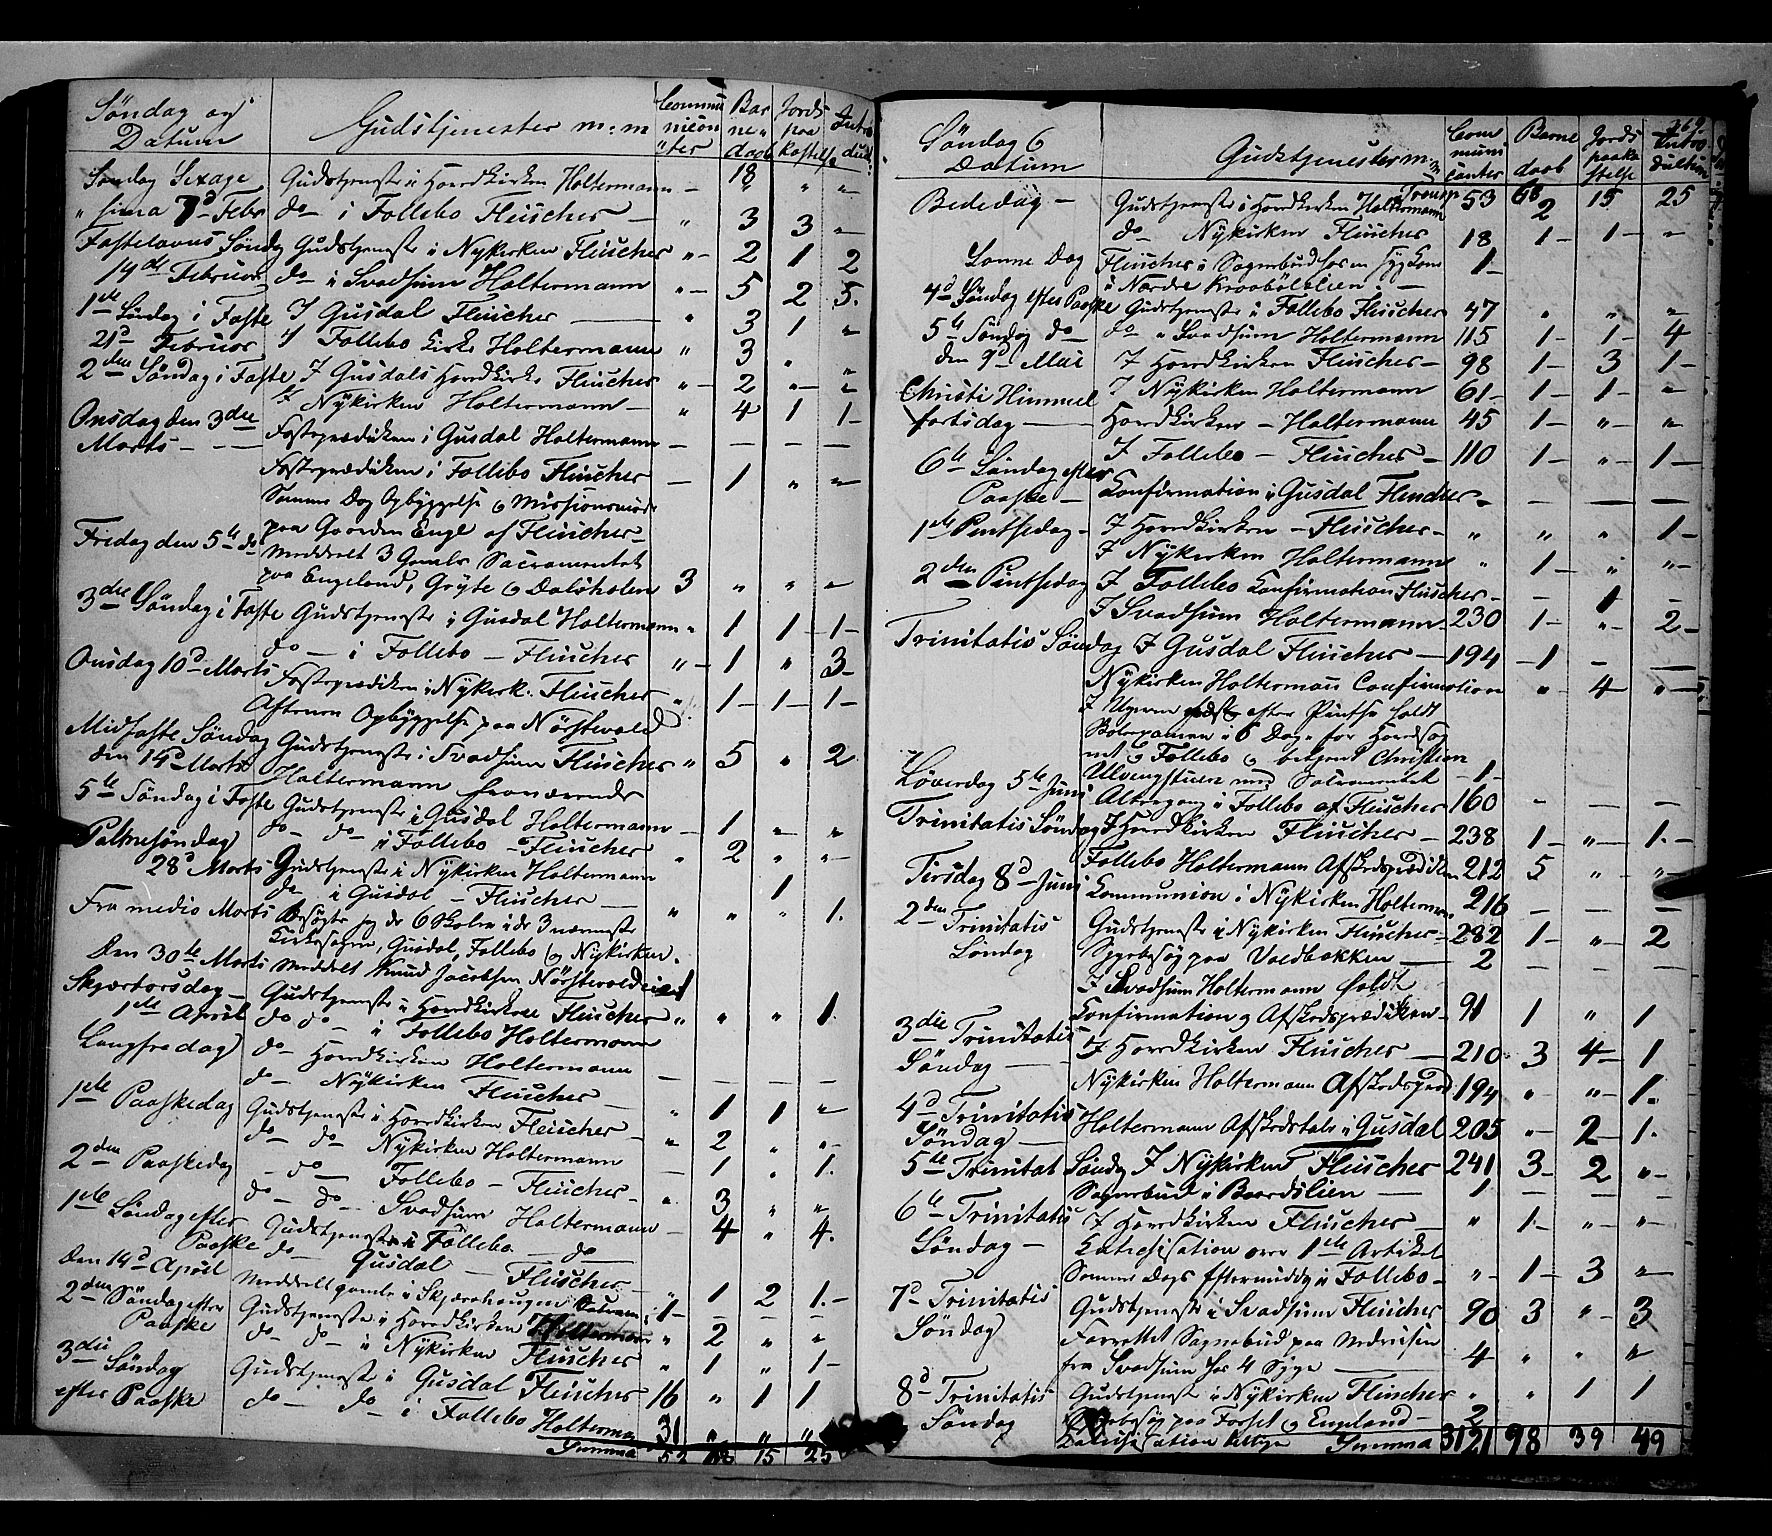 Søndag og Datum | Gudstjenester m: m | Communicanter | Barnedaab | Jords paakastelse | Introduct.
Søndag Sexage | Gudstjeneste i Hovedkirken Holtermann — 18 " " "
" sima 7d Febr | do — i Follebo Fleischer — " 3 3 "
Fastelavns Søndag | Gudstjeneste i Nykirken Fleischer " 2 1 2
14de Februar | do — i Svadsum Holtermann " 5 2 5.
1ste Søndag i Faste | I Gusdal Fleischer — " 3 1 "
21d Februar | I Follebo Kirke Holtermann " 3 " "
2den Søndag i Faste | I Gusdals Hovedkirke Fleischer " 2 " "
I Nykirken Holtermann — " 4 1 1
Onsdag den 3die | Fasteprædiken i Gusdal Holtermann — — — —
Marts — | Fasteprædiken i Follebo Fleischer — 1 " "
Samme Dag Opbyggelse & Missionsmøde
Fredag den 5te do | paa Gaarden Enge af Fleischer
meddelt 3 Gamle Sacramentet
paa Engeland, Gryte & Dalsholen 3 " " "
3die Søndag i Faste | Gudstjeneste i Gusdal Holtermann " 1 1 1
do — i Follebo — Fleischer " 1 " 3
Onsdag 10d Marts | Fasteprædiken i Nykirk. Fleischer " 1 1 1
Aftenen Opbyggelse paa Nörstevold
Midfaste Søndag | Gudstjeneste i Svadsum Fleischer " 5 " 2
den 14d Marts | Holtermann fraværende
5te Søndag i Faste | Gudstjeneste i Gusdal Holtermann — 1 " "
Palmesøndag | do — do — i Follebo — Fleischer " 2 " "
28d Marts | Gudstjeneste i Nykirken Holtermann
do i Gusdal — Fleischer — " " 1 1.
Fra medio Marts | Besögte jeg de 6 Skoler i de 3 nærmeste
Kirkesogne, Gusdal, Follebo & Nykirken.
Den 30te Marts | meddelt Knud Jacobsen Nörstevoldeie 1
Skjærtorsdag — | Gudstjeneste i Hovedkirken Fleischer " " " 1.
1ste April | do do — i Follebo Holtermann
Langfredag | do — Hovedkirken Holtermann — — — —
do — Nykirken Fleischer —
1ste Paaskedag | Gudstjeneste i Hovedkirken Fleischer — " 1 1 "
do — do — Nykirken Holtermann " 2 " "
2den Paaskedag | — do — Follebo — Fleischer — — 1 " 1.
do — do — Svadsum Holtermann " 3 " "
1ste Søndag efter | Gudstjeneste i Follebo — do — 4 " 4.
Paaske | do — Gusdal — Fleischer —
Den 14d April | meddelt gamle i Skjærehaugen 1
2den Søndag efter | Gudstjeneste i Hovedkirken Holtermann " 2 " "
Paaske | do — do — i Nykirken Fleischer " 1 " 1
3die Søndag | Gudstjeneste i Gusdal Fleischer 16 " 1 1
efter Paaske | do — do — i Follebo Holterman 31 " " "
Summa 53 68 15 25
369.
Søndag & Datum | Gudstjenester m: m | Communicanter | Barne daab | Jords paakastelse | Introduktion
Transp 53 68 15 25
Bededag — | Gudstjeneste i Hovedkirken Holtermann 2
do — Nykirken Fleischer 18 1 1 "
Samme Dag | Fleischer i Sognebud hos en syg Kone 1
i Nordre Kraabölslien. —
4d Søndag efter Paaske | Gudstjeneste i Follebo Fleischer 47 " " "
5te Søndag do — | do " Svadsum Holtermann 115 1 1 4
den 9d Mai | I Hovedkirken Fleischer — 98 1 3 1
Christi Himmel | I Nykirken Holtermann 61 1 1 "
fartsdag — | Hovedkirken — Holtermann 45 1 " "
6te Søndag efter | I Follebo — Fleischer — 110 1 " 1
Paaske — | Konfirmation i Gusdal Fleischer " — — —
1ste Pintsedag — | I Hovedkirken — Fleischer — " " " 1
I Nykirken Holtermann " 1 " "
2den Pintsedag | I Follebo Confirmation Fleischer — — 1 —
I Svadsum Holtermann 230 1 " 2
Trinitatis Søndag | I Gusdal Fleischer — 194 1 — —
Nykirken Holterman Confirmation " 4 " —
I Ugen efter Pintse holdt
Skoleexamen i 6 Dage for Hovedsog
net & Follebo & betjent Christian
Ulvengstuen med Sacramentet 1
Løverdag 5te Juni | Altergang i Follebo af Fleischer 160 — — —
Trinitatis Søndag | I Hovedkirken Fleischer — 238 1 " 1.
Follebo Holtermann Afskedsprædiken 212 5 " "
Tirsdag 8d Juni | Communion i Nykirken Holterman 216 — — —
2den Trinitatis | Gudstjeneste i Nykirken Fleischer 282 1 " 2
Søndag | Sygebesög paa Voldbakken — 2 — — —
I Svadsum Holtermann holdt
Confirmation & Afskedsprædiken 91 1 " 1
3die Trinitatis | I Hovedkirken Fleischer — 210 3 4 1
Søndag — | Nykirken Holtermann Afskedspræd 194 " " 1.
4d Trinitatis | Holtermann Afskedstale i Gusdal 205 " 2 1.
Søndag —
5te Trinitat Søndag | I Nykirken Fleischer 241 3 2 "
Sognebud i Baardslien — 1 — — —
6te Trinitatis | I Hovedkirken Fleischer — " 1 " "
Søndag — | Katechisation over 1ste Artikel
Samme Dags Eftermiddag i Follebo — " 1 3 "
7d Trinitatis | Gudstjeneste i Svadsum Fleischer 90 3 " 3
Søndag | Forrettet Sognebud paa Nedreisen
fra Svadsum hos 4 Syge — 4 " " "
8d Trinitatis | Gudstjeneste i Nykirken Fleischer " " 1 1
Søndag | Sygebesög paa Forset & Engeland — 2
Katechisation Summa 3121 98 39 49